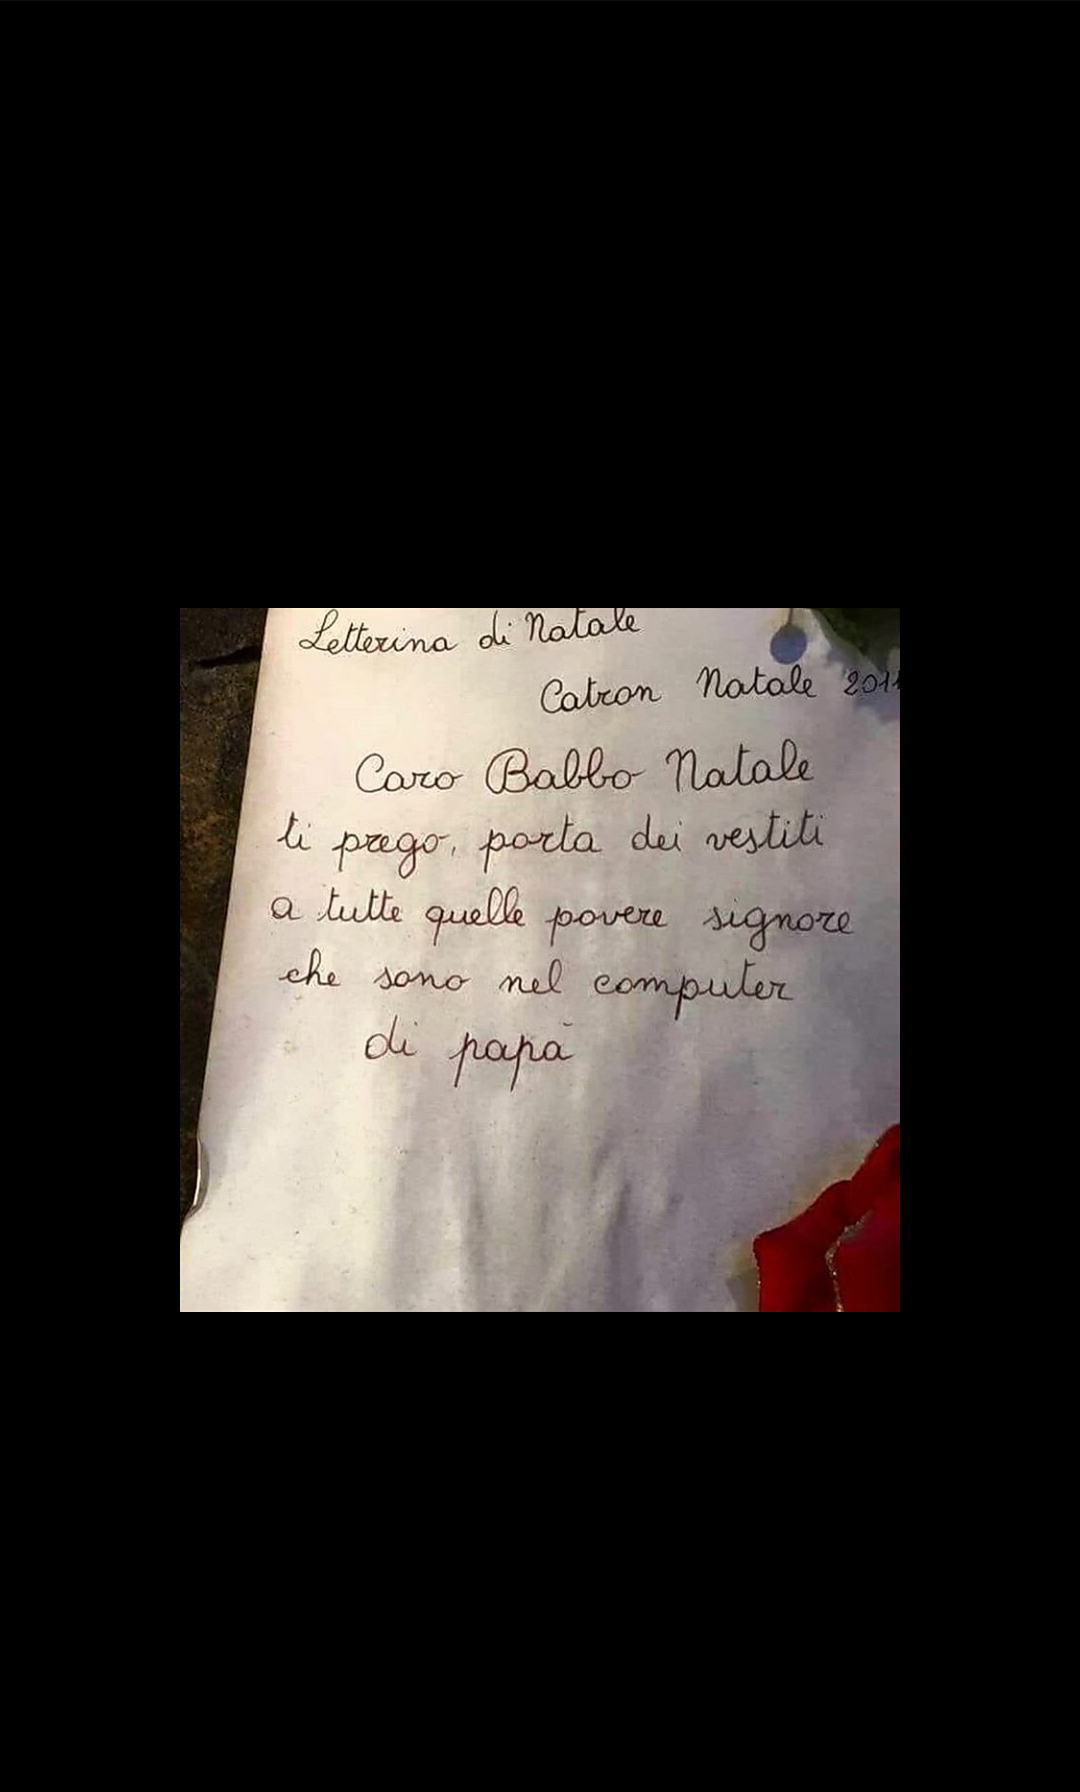 Letterina di Natale
Catron Natale
Caro Babbo Natale
ti prego, porta dei vestiti
a tutte quelle povere signore
che sono nel computer
di papà